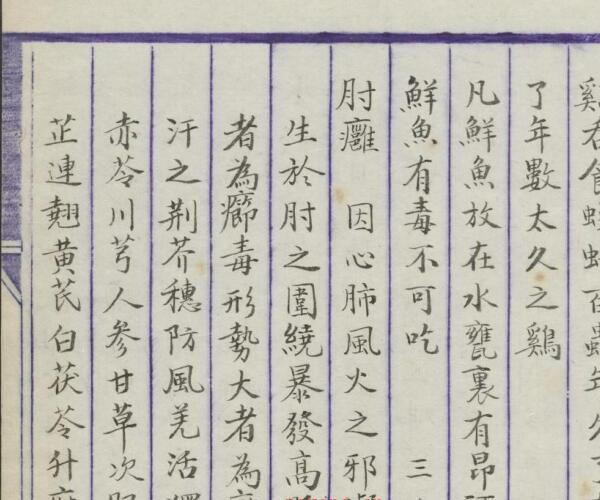 雞吞食
了年數太久之鷄
凡鮮魚放在水甕裏有昂
鮮魚有毒不可吃 三
肘癰 因心肺風火之邪
生於肘之圍繞暴發高
者為癤毒形勢大者為
汗之荆芥穗防風羌活
赤苓川芎人參甘草次
芷連翹黃芪白茯苓升